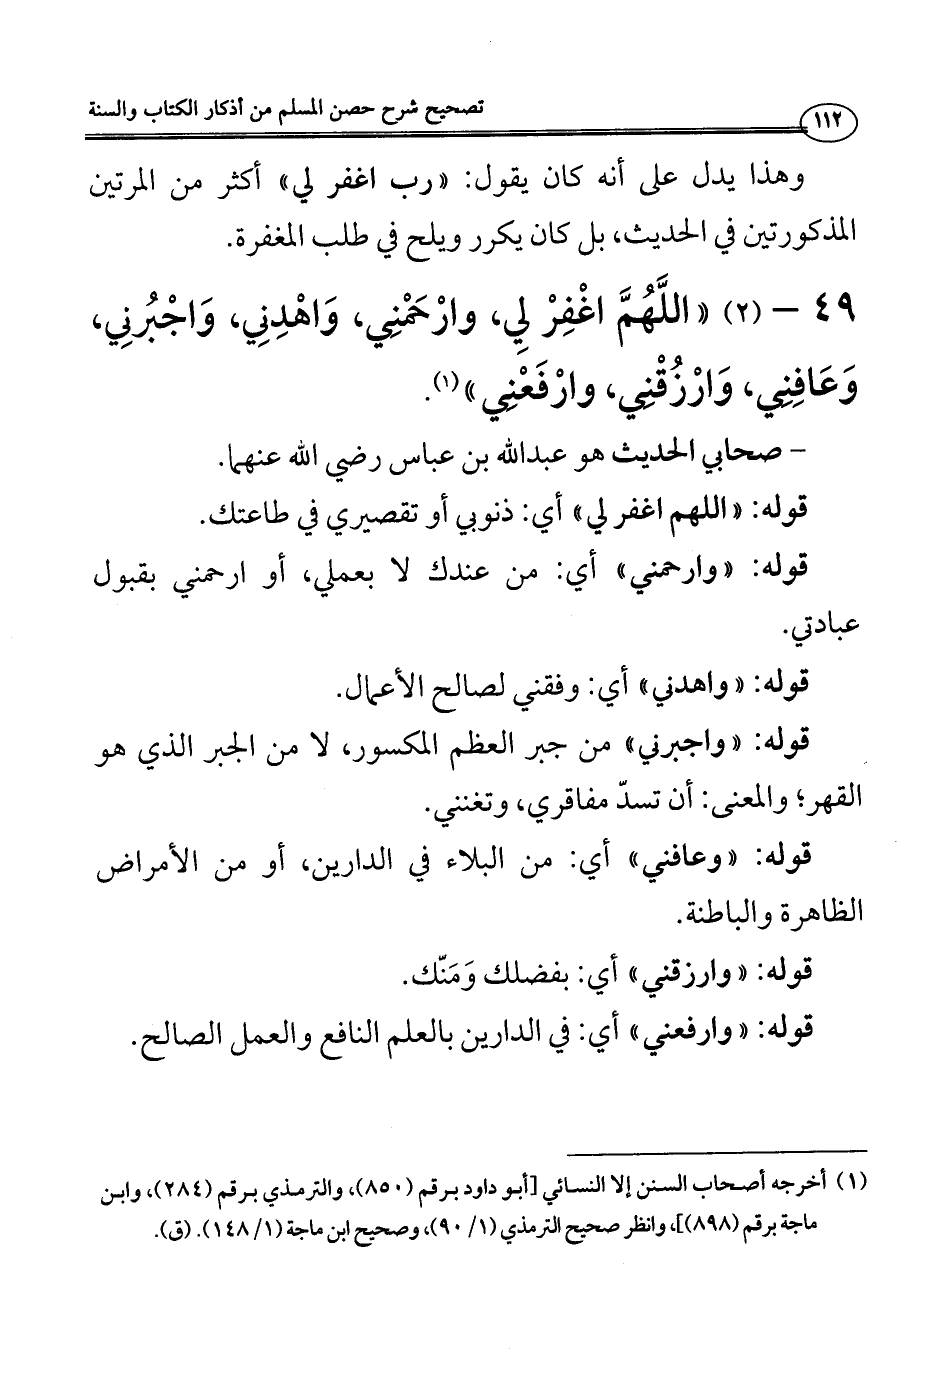 ١١٢ تصحيح شرح حصن المسلم من أذكار الكتاب والسنة
وهذا يدل على أنه كان يقول: «رب اغفر لي» أكثر من المرتين
المذكورتين في الحديث، بل كان يكرر ويلح في طلب المغفرة.
٤٩ – (٢) «اللَّهُمَّ اغْفِرْ لِي، وارْحَمْنِي، وَاهْدِنِي، وَاجْبُرنِي،
وَعَافِنِي، وَارْزُقْنِي، وارْفَعْنِي»(١).
– صحابي الحديث هو عبدالله بن عباس رضي الله عنهما.
قوله: «اللهم اغفر لي» أي: ذنوبي أو تقصيري في طاعتك.
قوله: «وارحمني» أي: من عندك لا بعملي، أو ارحمني بقبول
عبادتي.
قوله: «واهدني» أي: وفقني لصالح الأعمال.
قوله: «واجبرني» من جبر العظم المكسور، لا من الجبر الذي هو
القهر؛ والمعنى: أن تسدّ مفاقري، وتغنني.
قوله: «وعافني» أي: من البلاء في الدارين، أو من الأمراض
الظاهرة والباطنة.
قوله: «وارزقني» أي: بفضلك وَمَنّك.
قوله: «وارفعني» أي: في الدارين بالعلم النافع والعمل الصالح.
(١) أخرجه أصحاب السنن إلا النسائي [أبو داود برقم (٨٥٠)، والترمذي برقم (٢٨٤)، وابن
ماجة برقم (٨٩٨)]، وانظر صحيح الترمذي (١/ ٩٠)، وصحيح ابن ماجة (١/ ١٤٨). (ق).